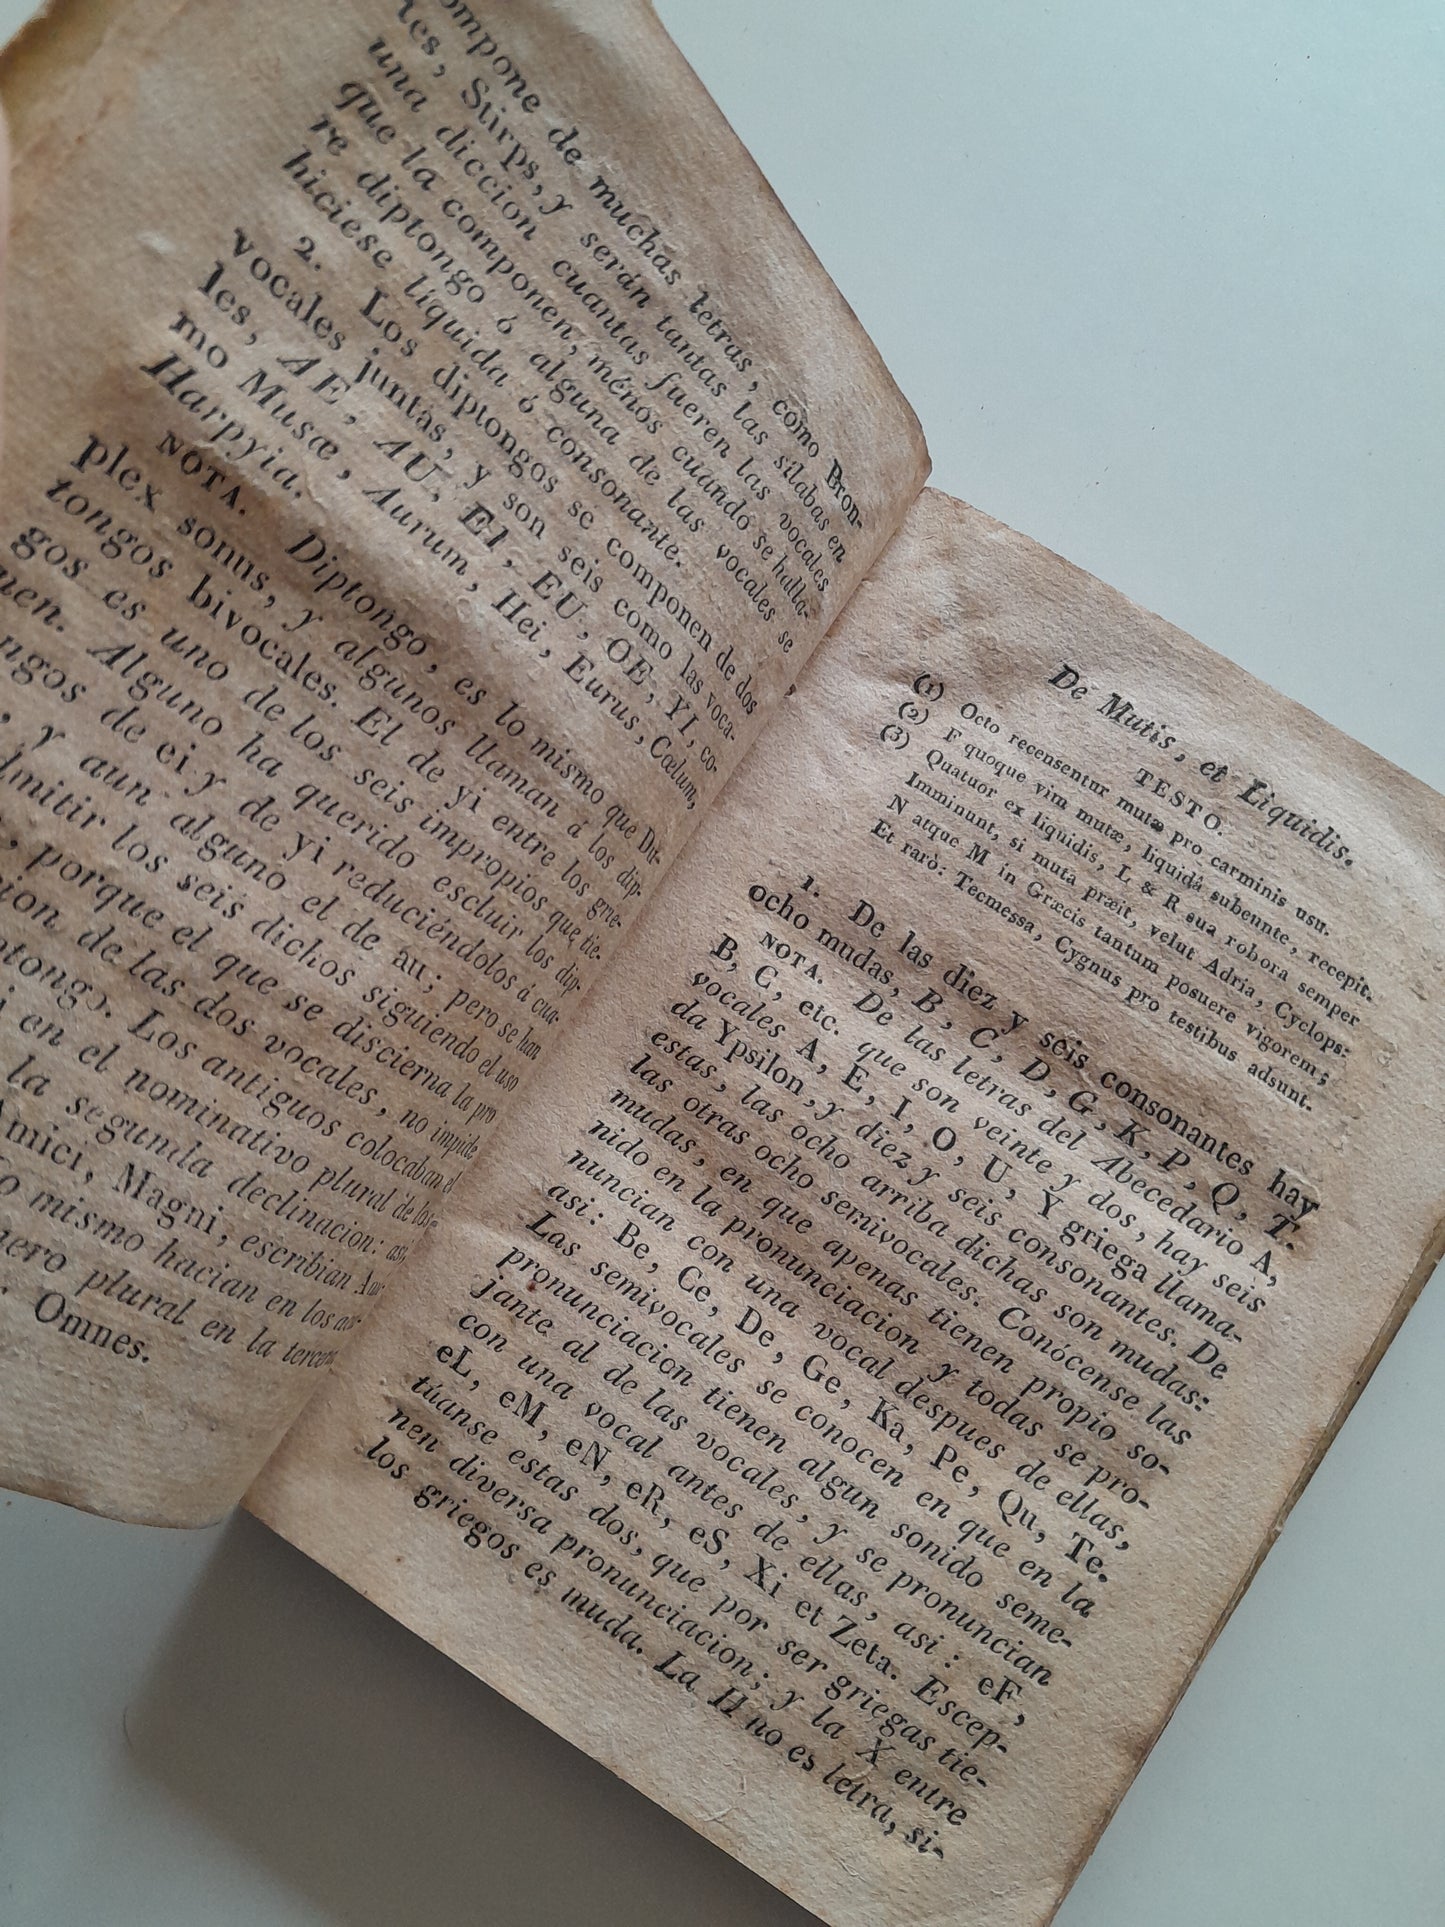 ompone de muchas letras, como Bron-
les, Stirps, y serán tantas las sílabas en
una diccion cuantas fueren las vocales
que la componen, ménos cuando se halla-
re diptongo ó alguna de las vocales se
hiciese líquida ó consonante.
2. Los diptongos se componen de dos
vocales juntas, y son seis como las voca-
les, AE, AU, EI, EU, OE, YI, co-
mo Musæ, Aurum, Hei, Eurus, Cœlum,
Harpyia.
NOTA. Diptongo, es lo mismo que Du-
plex sonus, y algunos llaman á los dip-
tongos bivocales. El de yi entre los grie-
gos es uno de los seis impropios que tie-
nen. Alguno ha querido escluir los dip-
ngos de ei y de yi reduciéndolos á cua-
, y aun alguno el de au; pero se han
dmitir los seis dichos siguiendo el uso
, porque el que se discierna la pro
cion de las dos vocales, no impide
ptongo. Los antiguos colocaban el
i en el nominativo plural de los
la segunda declinacion: asi
Amici, Magni, escribian Am
o mismo hacian en los acu-
nero plural en la tercera
: Omnes.
De Mutis, et Liquidis.
TESTO.
(1) Octo recensentur mutæ pro carminis usu.
(2) F quoque vim mutæ, liquidâ subeunte, recepit.
(3) Quatuor ex liquidis, L & R sua robora semper
Imminunt, si muta præit, velut Adria, Cyclops:
N atque M in Græcis tantum posuere vigorem;
Et rarò: Tecmessa, Cygnus pro testibus adsunt.
1. De las diez y seis consonantes hay
ocho mudas, B, C, D, G, K, P, Q, T.
NOTA. De las letras del Abecedario A,
B, C, etc. que son veinte y dos, hay seis
vocales A, E, I, O, U, Y griega llama-
da Ypsilon, y diez y seis consonantes. De
estas, las ocho arriba dichas son mudas:
las otras ocho semivocales. Conócense las
mudas, en que apenas tienen propio so-
nido en la pronunciacion y todas se pro-
nuncian con una vocal despues de ellas,
asi: Be, Ce, De, Ge, Ka, Pe, Qu, Te.
Las semivocales se conocen en que en la
pronunciacion tienen algun sonido seme-
jante al de las vocales, y se pronuncian
con una vocal antes de ellas, asi: eF,
eL, eM, eN, eR, eS, Xi et Zeta. Escep-
túanse estas dos, que por ser griegas tie-
nen diversa pronunciacion; y la X entre
los griegos es muda. La H no es letra, si-